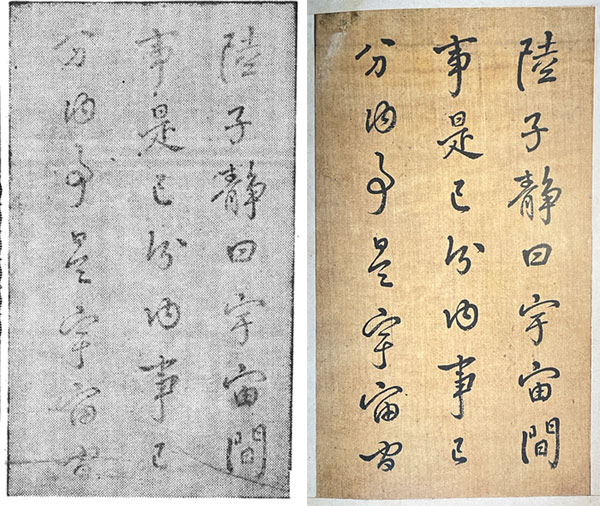 陸子靜曰宇宙間
事是己分内事己
分内事是宇宙間
陸子靜曰宇宙間
事是己分内事己
分内事是宇宙間